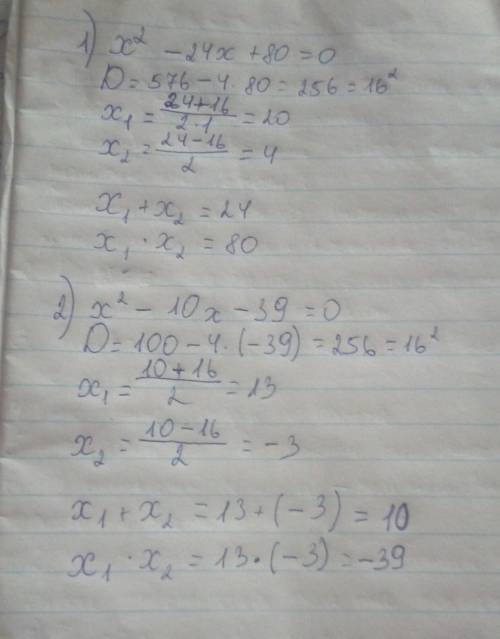 1) x² - 24x + 80 = 0
D = 576 - 4 · 80 = 256 = 16²
x₁ = (24+16)/(2·1) = 20
x₂ = (24-16)/2 = 4
x₁ + x₂ = 24
x₁ · x₂ = 80
2) x² - 10x - 39 = 0
D = 100 - 4 · (-39) = 256 = 16²
x₁ = (10+16)/2 = 13
x₂ = (10-16)/2 = -3
x₁ + x₂ = 13 + (-3) = 10
x₁ · x₂ = 13 · (-3) = -39